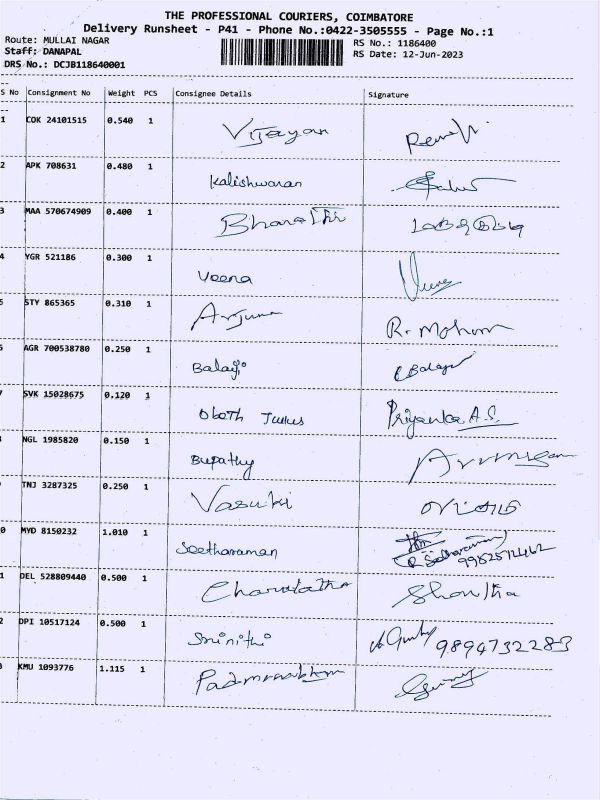 THE PROFESSIONAL COURIERS, COIMBATORE
Delivery Runsheet - P41 - Phone No.:0422-3505555 - Page No.:1
Route: MULLAI NAGAR RS No.: 1186400
Staff: DANAPAL RS Date: 12-Jun-2023
DRS No.: DCJB118640001
S No Consignment No Weight PCS Consignee Details Signature
1 COK 24101515 0.540 1 Vijayan
2 APK 708631 0.480 1 Kalishwaran
3 MAA 570674909 0.400 1 Bharathi
4 YGR 521186 0.300 1 Veena Veena
5 STY 865365 0.310 1 Arjun R. Mohan
6 AGR 700538780 0.250 1 Balaji Balaji
7 SVK 15028675 0.120 1 Obeth Julius Priyanka A.S.
8 NGL 1985820 0.150 1 Bupathy Arumugam
9 TNJ 3287325 0.250 1 Vasuki
0 MYD 8150232 1.010 1 Seetharaman R Seetharaman
1 DEL 528809440 0.500 1 Charulatha Shantha
2 DPI 10517124 0.500 1 Srinithi 9894732283
3 KMU 1093776 1.115 1 Padmanabhan